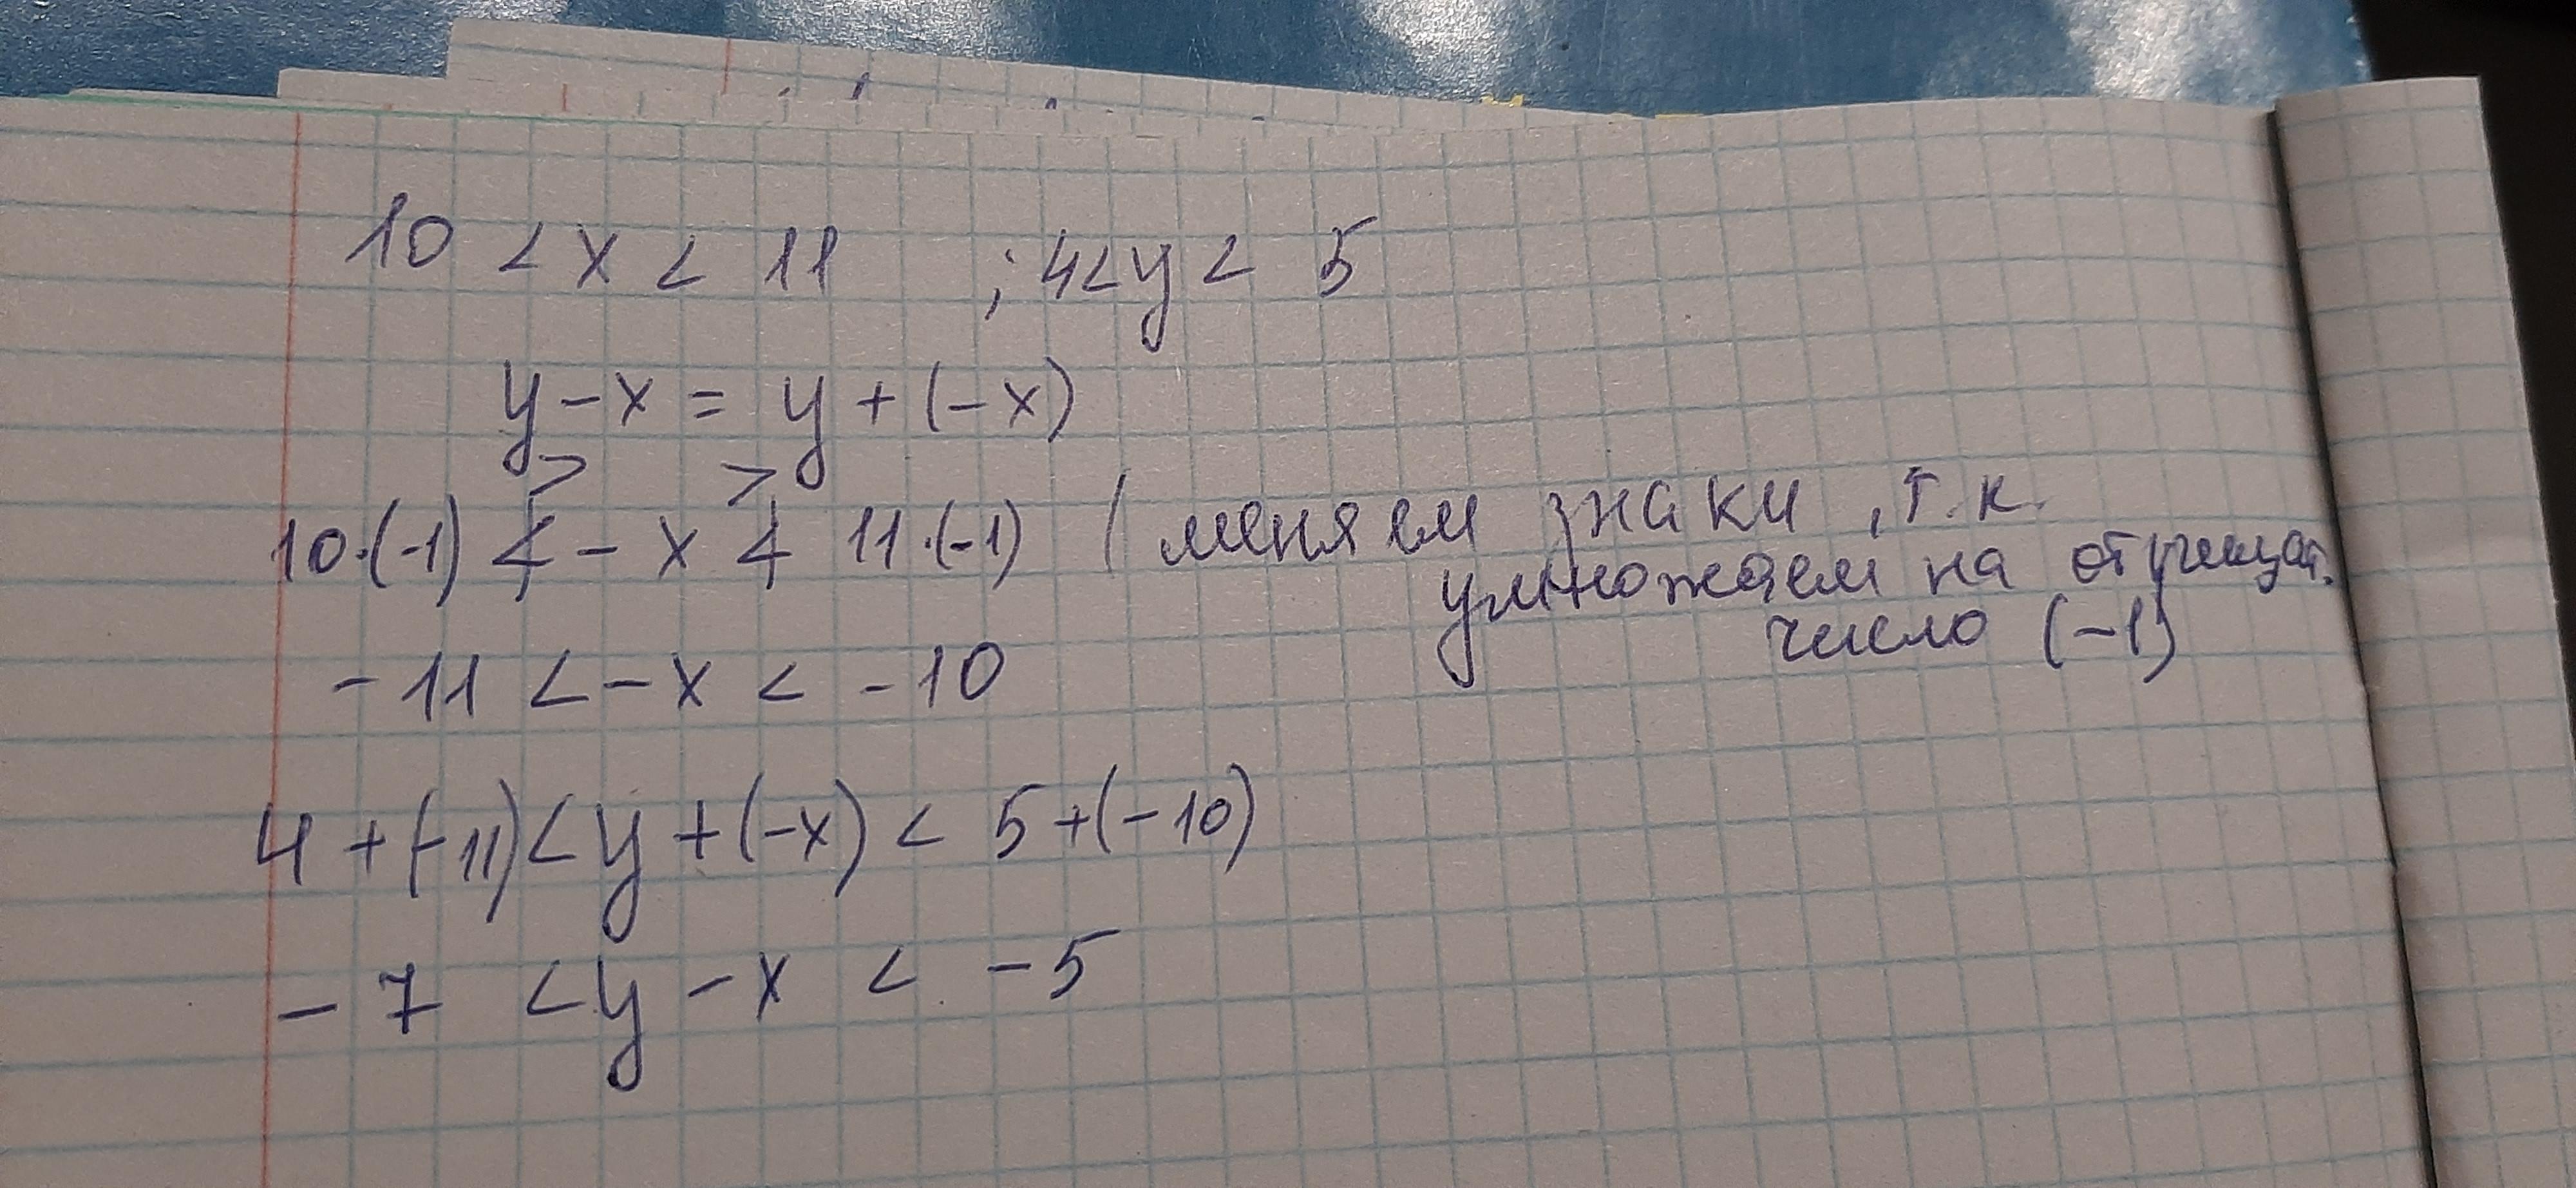 10 < x < 11 ; 4 < y < 5
y - x = y + (-x)
> >
10·(-1) < - x < 11·(-1) / меняем знаки, т.к.
умножаем на отрицат.
число (-1)
-11 < -x < -10
4 + (-11) < y + (-x) < 5 + (-10)
-7 < y - x < -5